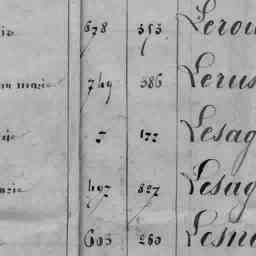 678 353 Lerou
marie 749 386 Lerus
5 122 Lesag
497 827 Lesag
603 260 Lesn